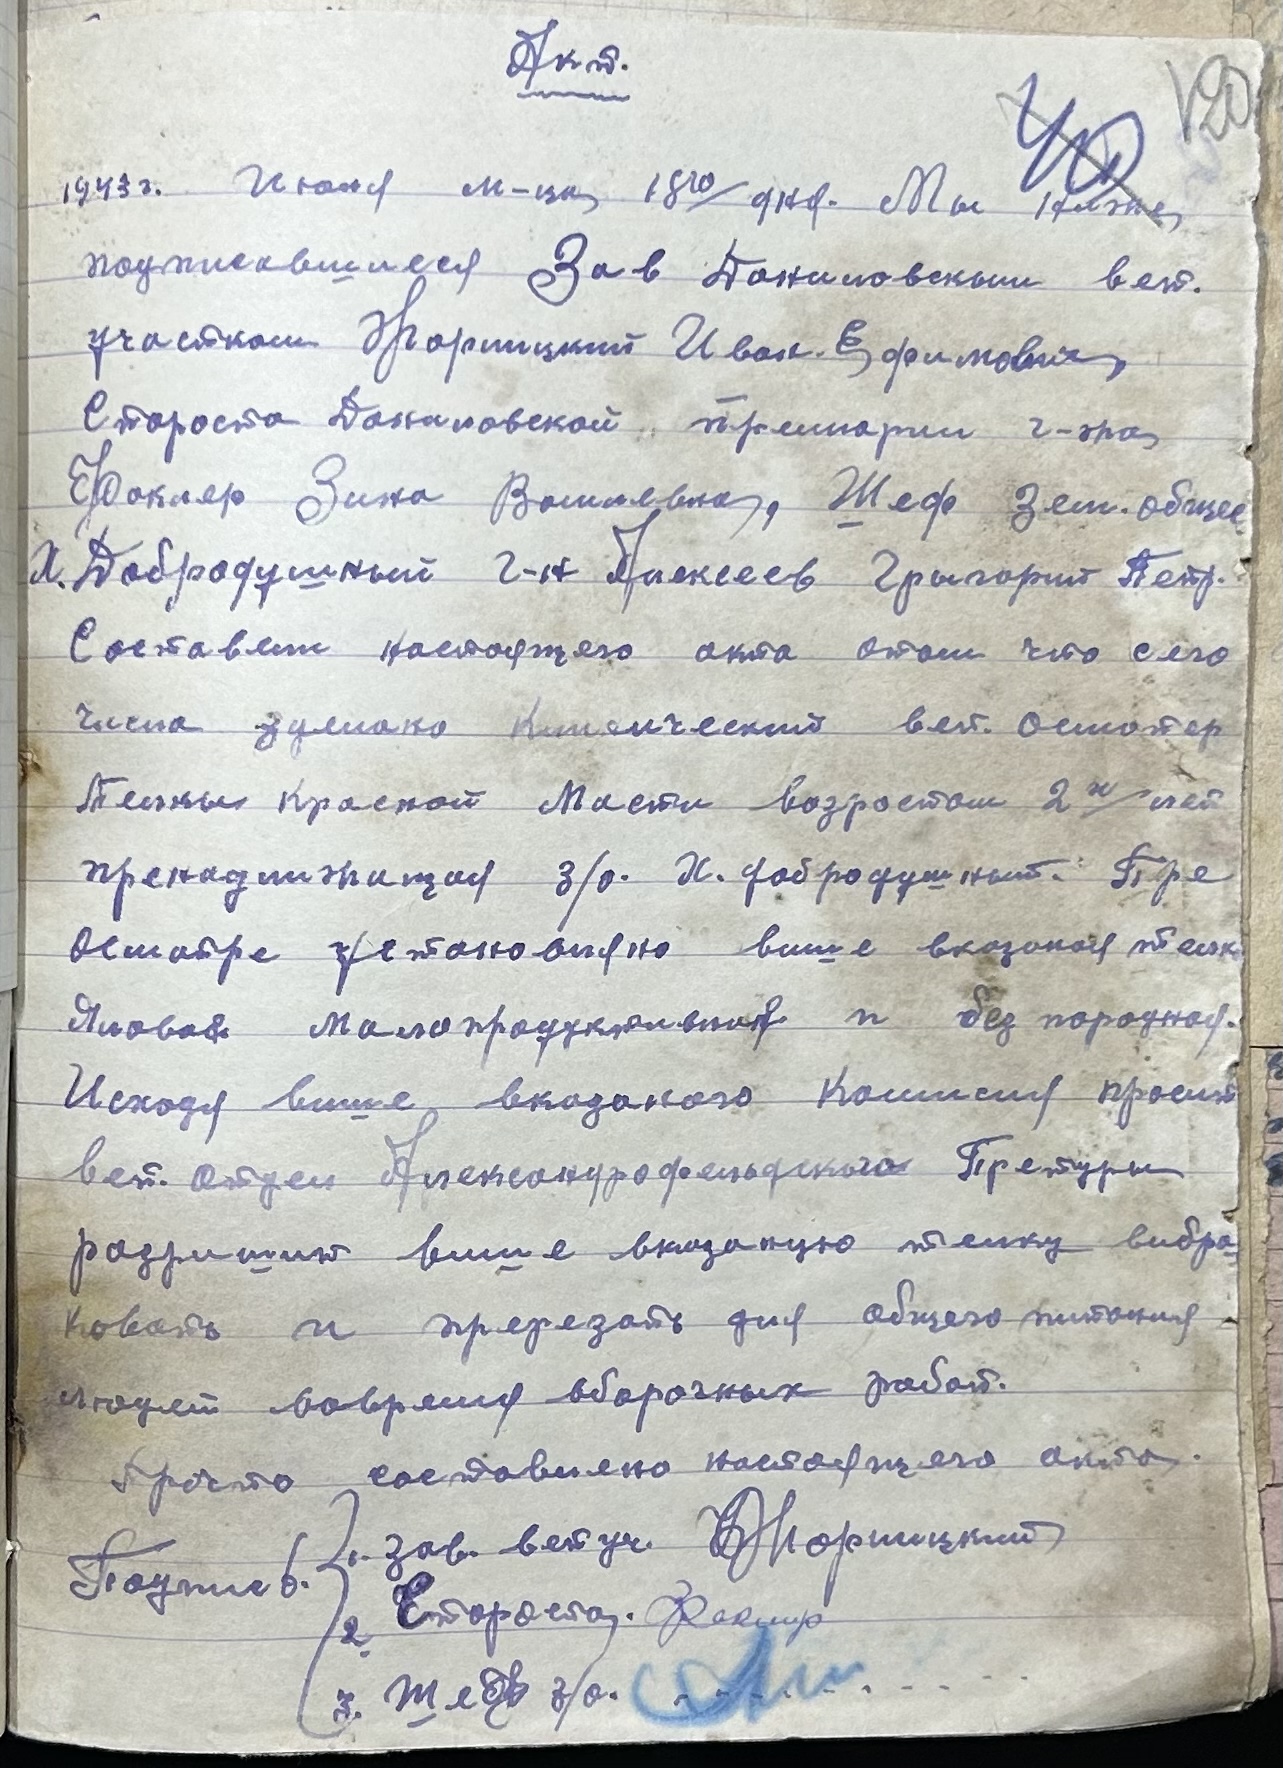 Акт.
120
40
1943 г. Июля м-ца 18го/ дня. Мы ниже
подписавшиеся Зав Даниловским вет.
участком Жорницкий Иван. Ефимович,
Староста Даниловской примарии г-жа
Факлер Зина Васильевна, Шеф зем. общес
Х. Добродушный г-н Алексеев Грыгорий Петр.
Составели настоящего акта отом что сего
числа зделано Клинический вет. осмотер
Телкы красной масти возростом 2х/ лет
пренадлижащая з/о. Х. добродушный. Пре
осмотре установляно више вказаная телка
Яловая малопродуктивная и без породная.
Исходя више вказаного Комисия просит
вет. отдел Александрофельдского Претуры
розришит више вказаную телку вибра
ковать и пререзать для общего питания
людей вовремя вборочных работ.
Прочто составлено настоящего акта.
Подписи:
1. зав. вет уч. Жорницкий
2. Староста. Факлер
3. Шеф з/о.